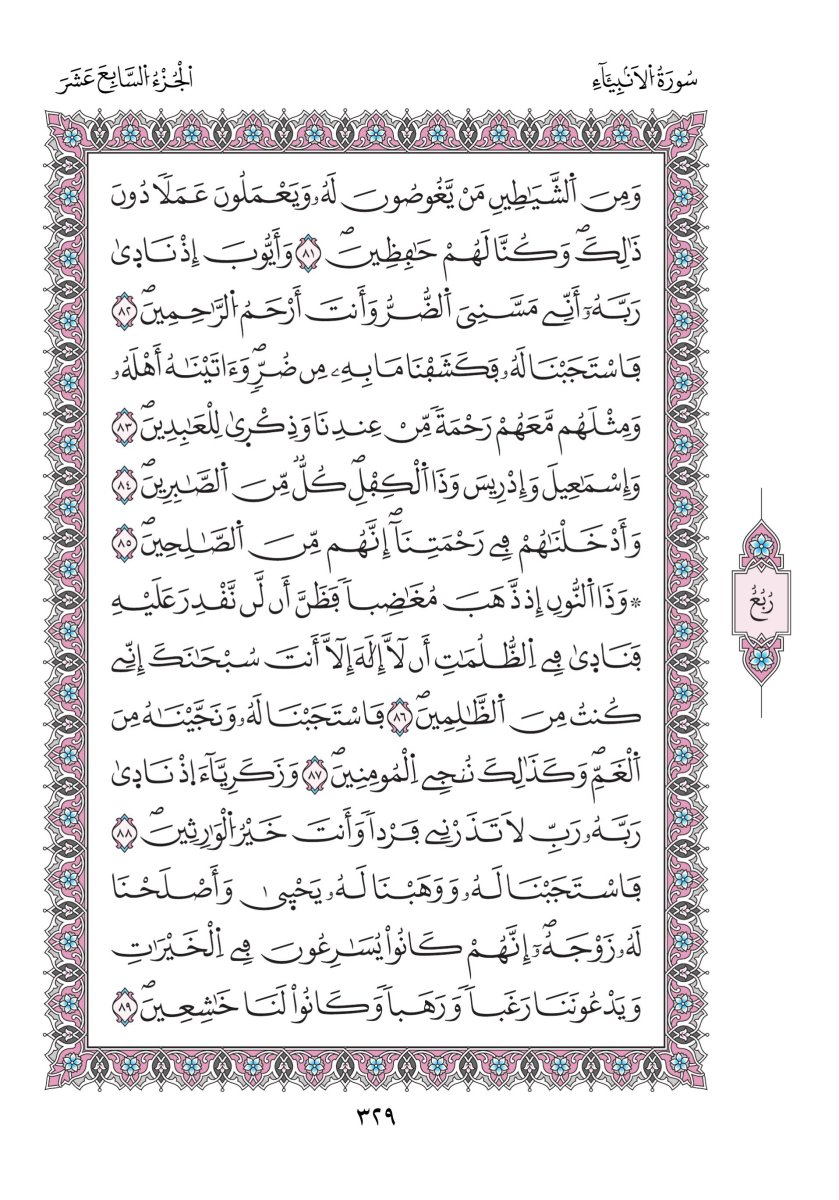 سُورَةُ اُ۬لَانۢبِيَآءِ
اَ۬لْجُزْءُ اُ۬لسَّابِعَ عَشَرَ
وَمِنَ اَ۬لشَّيَٰطِينِ مَنْ يَّغُوصُونَ لَهُۥ وَيَعْمَلُونَ عَمَلاٗ دُونَ
ذَٰلِكَۖ وَكُنَّا لَهُمْ حَٰفِظِينَۖ ٨١ وَأَيُّوبَ إِذْ نَادۭيٰ
رَبَّهُۥٓ أَنِّے مَسَّنِيَ اَ۬لضُّرُّ وَأَنتَ أَرْحَمُ اُ۬لرَّٰحِمِينَۖ ٨٢
فَاسْتَجَبْنَا لَهُۥ فَكَشَفْنَا مَا بِهِۦ مِن ضُرّٖۖ وَءَاتَيْنَٰهُ أَهْلَهُۥ
وَمِثْلَهُم مَّعَهُمْ رَحْمَةٗ مِّنْ عِندِنَا وَذِكْر۪يٰ لِلْعَٰبِدِينَۖ ٨٣
وَإِسْمَٰعِيلَ وَإِدْرِيسَ وَذَا اَ۬لْكِفْلِۖ كُلّٞ مِّنَ اَ۬لصَّٰبِرِينَۖ ٨٤
وَأَدْخَلْنَٰهُمْ فِے رَحْمَتِنَآۖ إِنَّهُم مِّنَ اَ۬لصَّٰلِحِينَۖ ٨٥
* وَذَا اَ۬لنُّونِ إِذ ذَّهَبَ مُغَٰضِباٗ فَظَنَّ أَن لَّن نَّقْدِرَ عَلَيْهِ
فَنَادۭيٰ فِے اِ۬لظُّلُمَٰتِ أَن لَّآ إِلَٰهَ إِلَّآ أَنتَ سُبْحَٰنَكَ إِنِّے
كُنتُ مِنَ اَ۬لظَّٰلِمِينَۖ ٨٦ فَاسْتَجَبْنَا لَهُۥ وَنَجَّيْنَٰهُ مِنَ
اَ۬لْغَمِّۖ وَكَذَٰلِكَ نُنجِے اِ۬لْمُومِنِينَۖ ٨٧ وَزَكَرِيَّآءَ اِ۪ذْ نَادۭيٰ
رَبَّهُۥ رَبِّ لَا تَذَرْنِے فَرْداٗ وَأَنتَ خَيْرُ اُ۬لْوَٰرِثِينَۖ ٨٨
فَاسْتَجَبْنَا لَهُۥ وَوَهَبْنَا لَهُۥ يَحْيۭيٰ وَأَصْلَحْنَا
لَهُۥ زَوْجَهُۥٓۖ إِنَّهُمْ كَانُواْ يُسَٰرِعُونَ فِے اِ۬لْخَيْرَٰتِ
وَيَدْعُونَنَا رَغَباٗ وَرَهَباٗ وَكَانُواْ لَنَا خَٰشِعِينَۖ ٨٩
رُبُعُ
٣٢٩